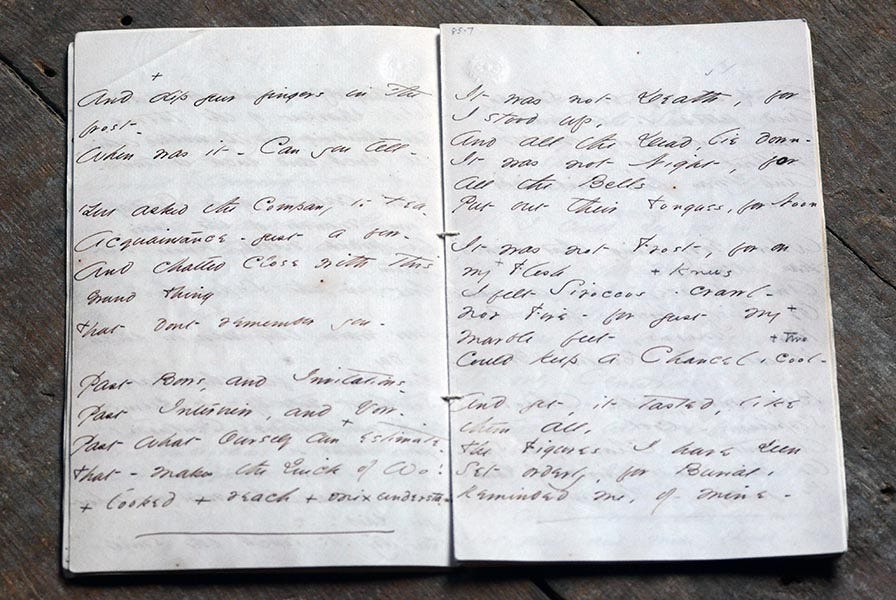 +
And dip your fingers in the
frost -
When was it - Can you tell -
Who asked the Company to tea -
Acquaintance - just a few -
And chatted close with this
Grand thing
that dont remember you -
Past Bows, and Invitations -
Past Interview, and Vow -
+
Past what Ourself can estimate -
that - makes the Quick of Wo!
+ looked + reach +
85-7
It was not Death, for
I stood up,
And all the Dead, lie down -
It was not Night, for
all the Bells
Put out their Tongues, for Noon
It was not Frost, for on
my + Flesh + Knees
I felt Siroccos - crawl -
Nor Fire - for just my +
marble feet + two
Could keep a Chancel, cool -
And yet, it tasted, like
them all,
the Figures I have seen
Set orderly, for Burial,
Reminded me, of mine -